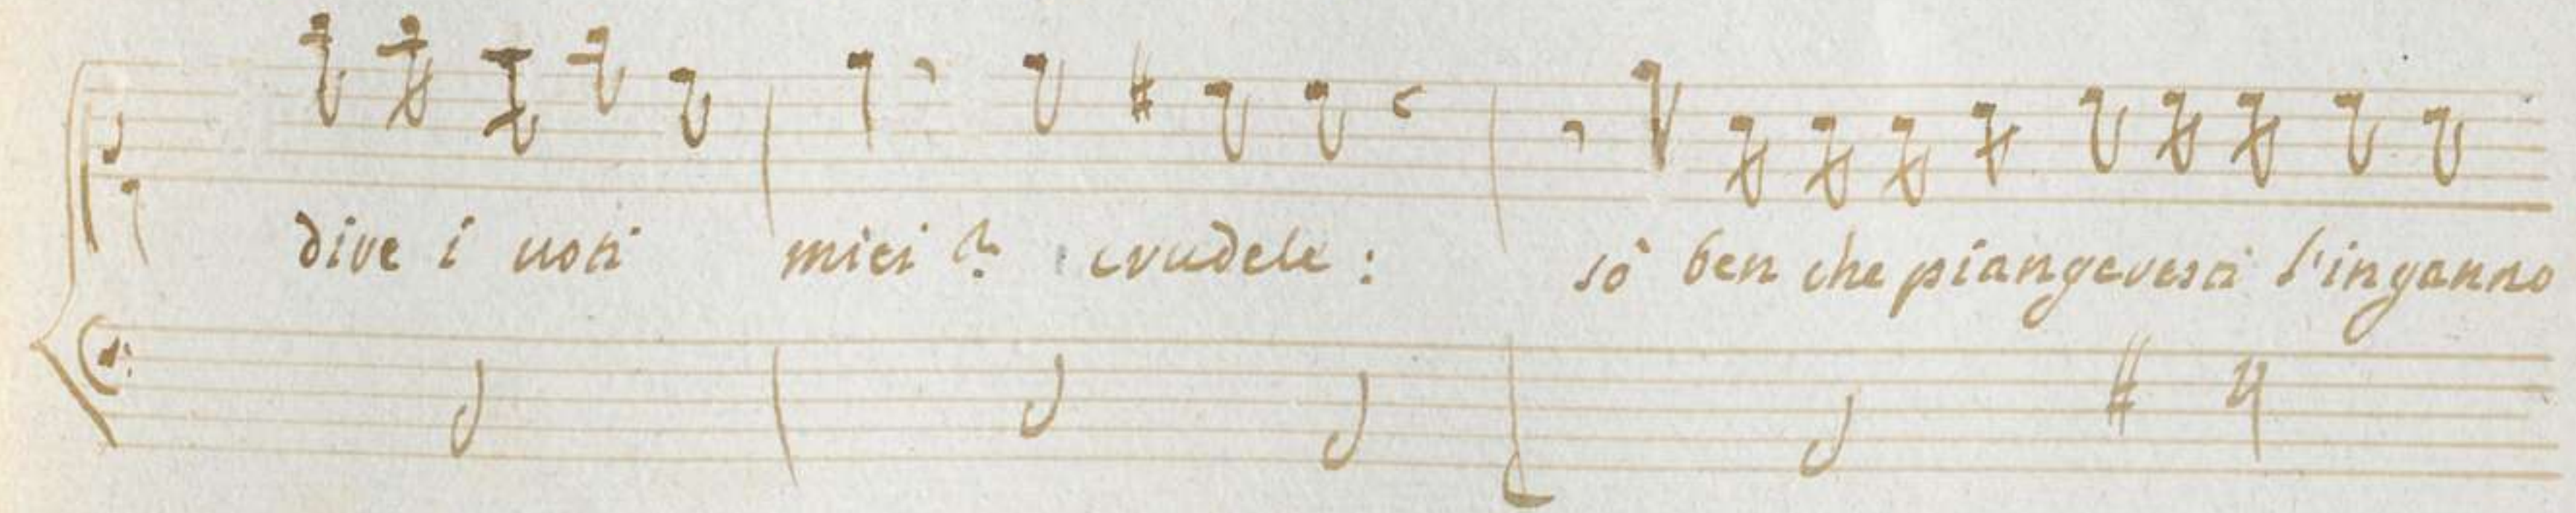 dire i voti miei? crudele: sò ben che piangeresti l'inganno